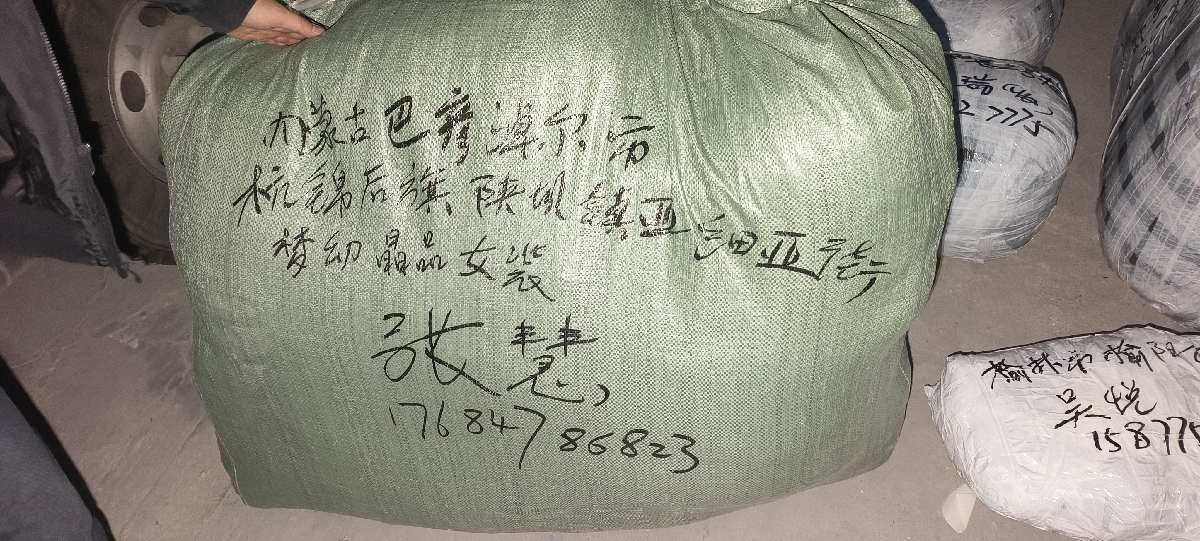 内蒙古巴彦淖尔市
杭锦后旗陕坝镇亚细亚
梦幻晶品女装
张慧
17684786823
瑞
2 7775
榆林市榆阳
吴悦
158775